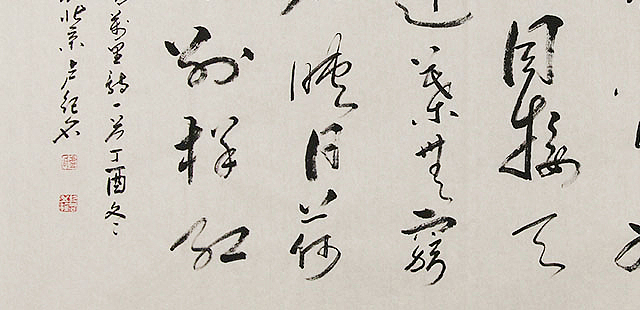 同接天
葉無窮
映日荷
别样红
萬里詩一首丁酉冬
北京卢